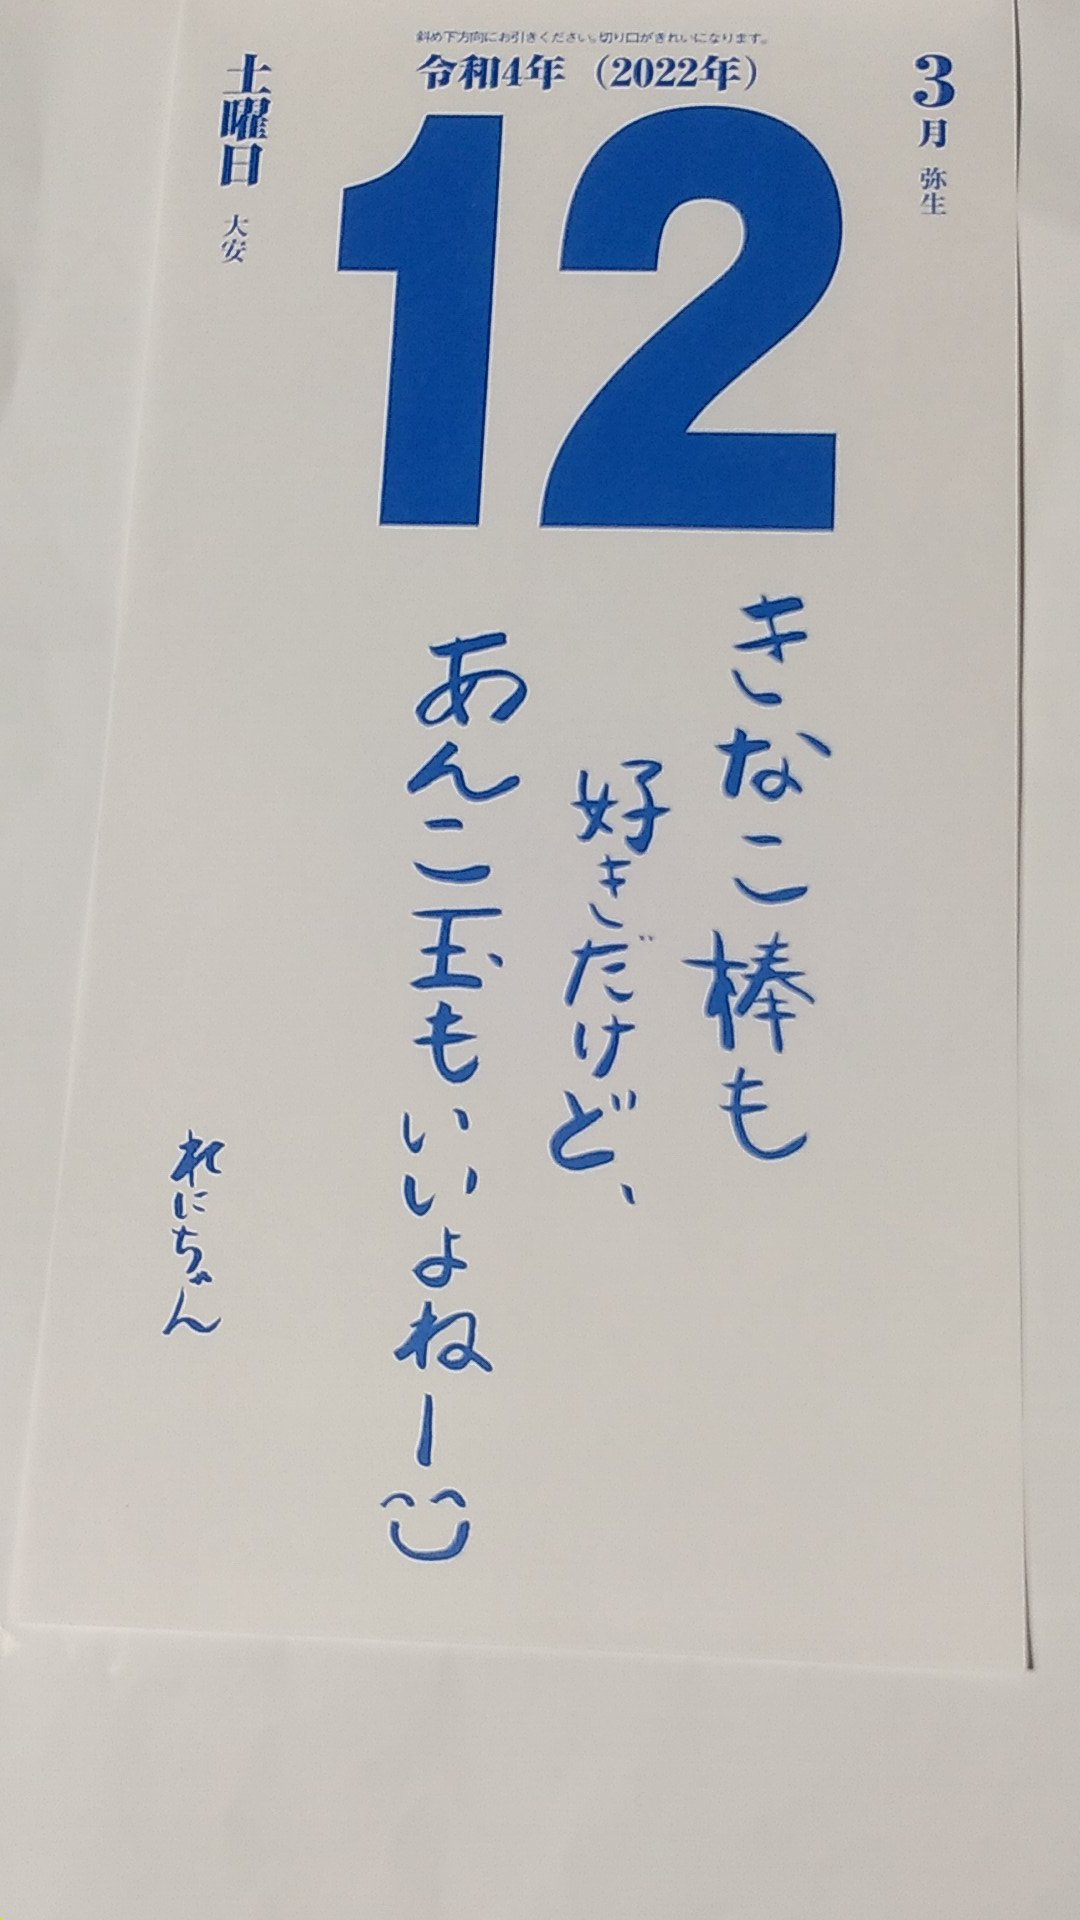 斜め下方向にお引きください。切り口がきれいになります。
令和4年（2022年）
3月 弥生
12
土曜日 大安
きなこ棒も
好きだけど、
あんこ玉もいいよねー
れにちゃん